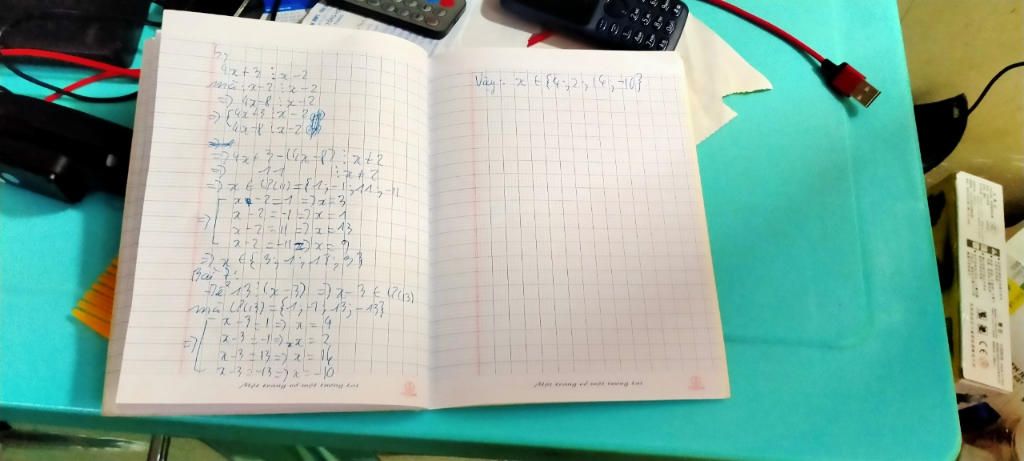 4x+3 ⋮ x-2
mà: x-2 ⋮ x-2
=> 4x-8 ⋮ x-2
=> { 4x+3 ⋮ x-2
4x-8 ⋮ x-2
=> 4x+3-(4x-8) ⋮ x-2
=> 11 ⋮ x-2
=> x ∈ Ư(11) = {1; -1; 11; -11
x-2=1 => x=3
x-2=-1 => x=1
=> x-2=11 => x=13
x-2=-11 => x=9
=> x ∈ {3; 1; 13; 9}
Bài 7:
Để 13 ⋮ (x-3) => x-3 ∈ Ư(13)
mà Ư(13)={1; -1; 13; -13}
x-3=1 => x=4
=> x-3=-1 => x=2
x-3=13 => x=16
x-3=-13 => x=-10
Một trang vở một tương lai
Vậy: x ∈ {4; 2; ; -10}
Một trang vở một tương lai